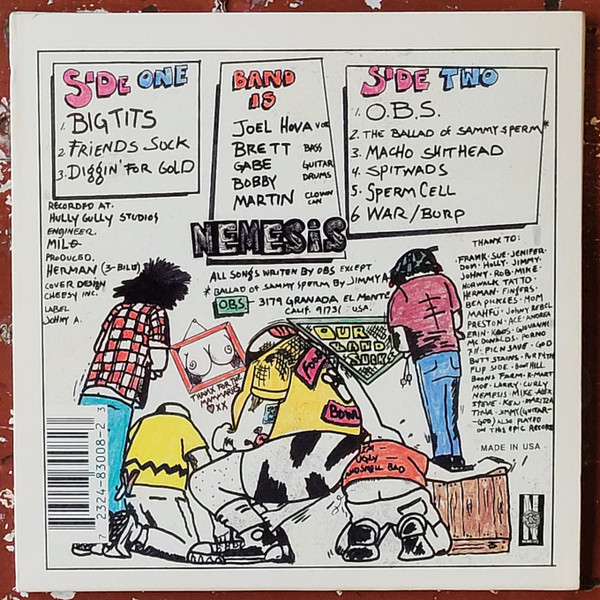 SIDE ONE
1. BIG TITS
2. FRIENDS SUCK
3. DIGGIN' FOR GOLD
BAND
IS
JOEL HOVA VOX
BRETT BASS
GABE GUITAR
BOBBY DRUMS
MARTIN CLOWN
CAN
SIDE TWO
1. O.B.S.
2. THE BALLAD OF SAMMY SPERM*
3. MACHO SHITHEAD
4. SPITWADS
5. SPERM CELL
6 WAR/BURP
RECORDED AT.
HULLY GULLY STUDIOS
ENGINEER.
MILO
PRODUCED.
HERMAN (3-BILL)
COVER DESIGN
CHEESY INC.
LABEL
JOHNY A.
NEMESIS
ALL SONGS WRITEN BY OBS EXCEPT
* BALLAD OF SAMMY SPERM BY JIMMY A
OBS- 3179 GRANADA EL MONTE
CALIF. 91731 USA.
THANX TO:
FRANK·SUE·JENIFER·
DON·HOLLY·JIMMY·
JOHNY·ROB·MIKE·
NORWALK TATTO·
HERMAN·FINGERS·
BEA PICKLES·MOM
MAHFU·JOHNY REBEL
PRESTON·ACE·ANDREA
ERIN·GIOVANNI
MCDONALDS·PORNO
7-11·PIC N SAVE·GOD
BUTT STAINS·
FLIP SIDE·BOOT HILL
BOONS FARM·K-MART
MOE·LARRY·CURLY
NEMESIS·MIKE·ALEX
STEVE·KEN·
TINA·JIMMY (GUITAR-
GOD) ALSO PLAYED
ON THIS EPIC RECORD
MADE IN USA
THANX FOR THE
MAMMARIES
XX
OUR
BAND
SUCKS
I'M
UGLY
AND SMELL BAD
7 2324-83008-2 3